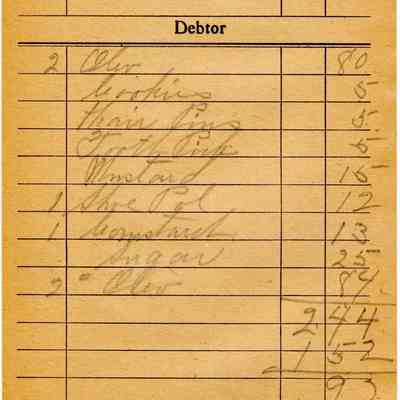 Debtor
2 Oleo 80
Cookies 5
Hair Pins 5
Tooth Pick 5
Mustard 15
1 Shoe Pol 12
1 Cornstarch 13
Sugar 25
2 " Oleo 84
2 44
1 52
93